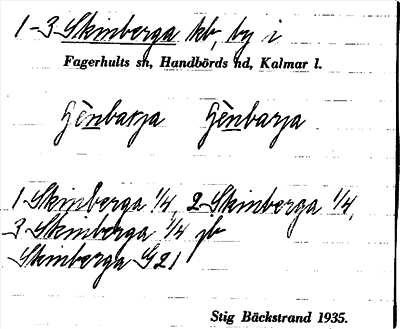 1-3 Skinberga kb, by i
Fagerhults sn, Handbörds hd, Kalmar l.
Skinberga 1/4, 2 Skinberga 1/4,
3 Skinberga 1/4 jb
Skinberga G21
Stig Bäckstrand 1935.